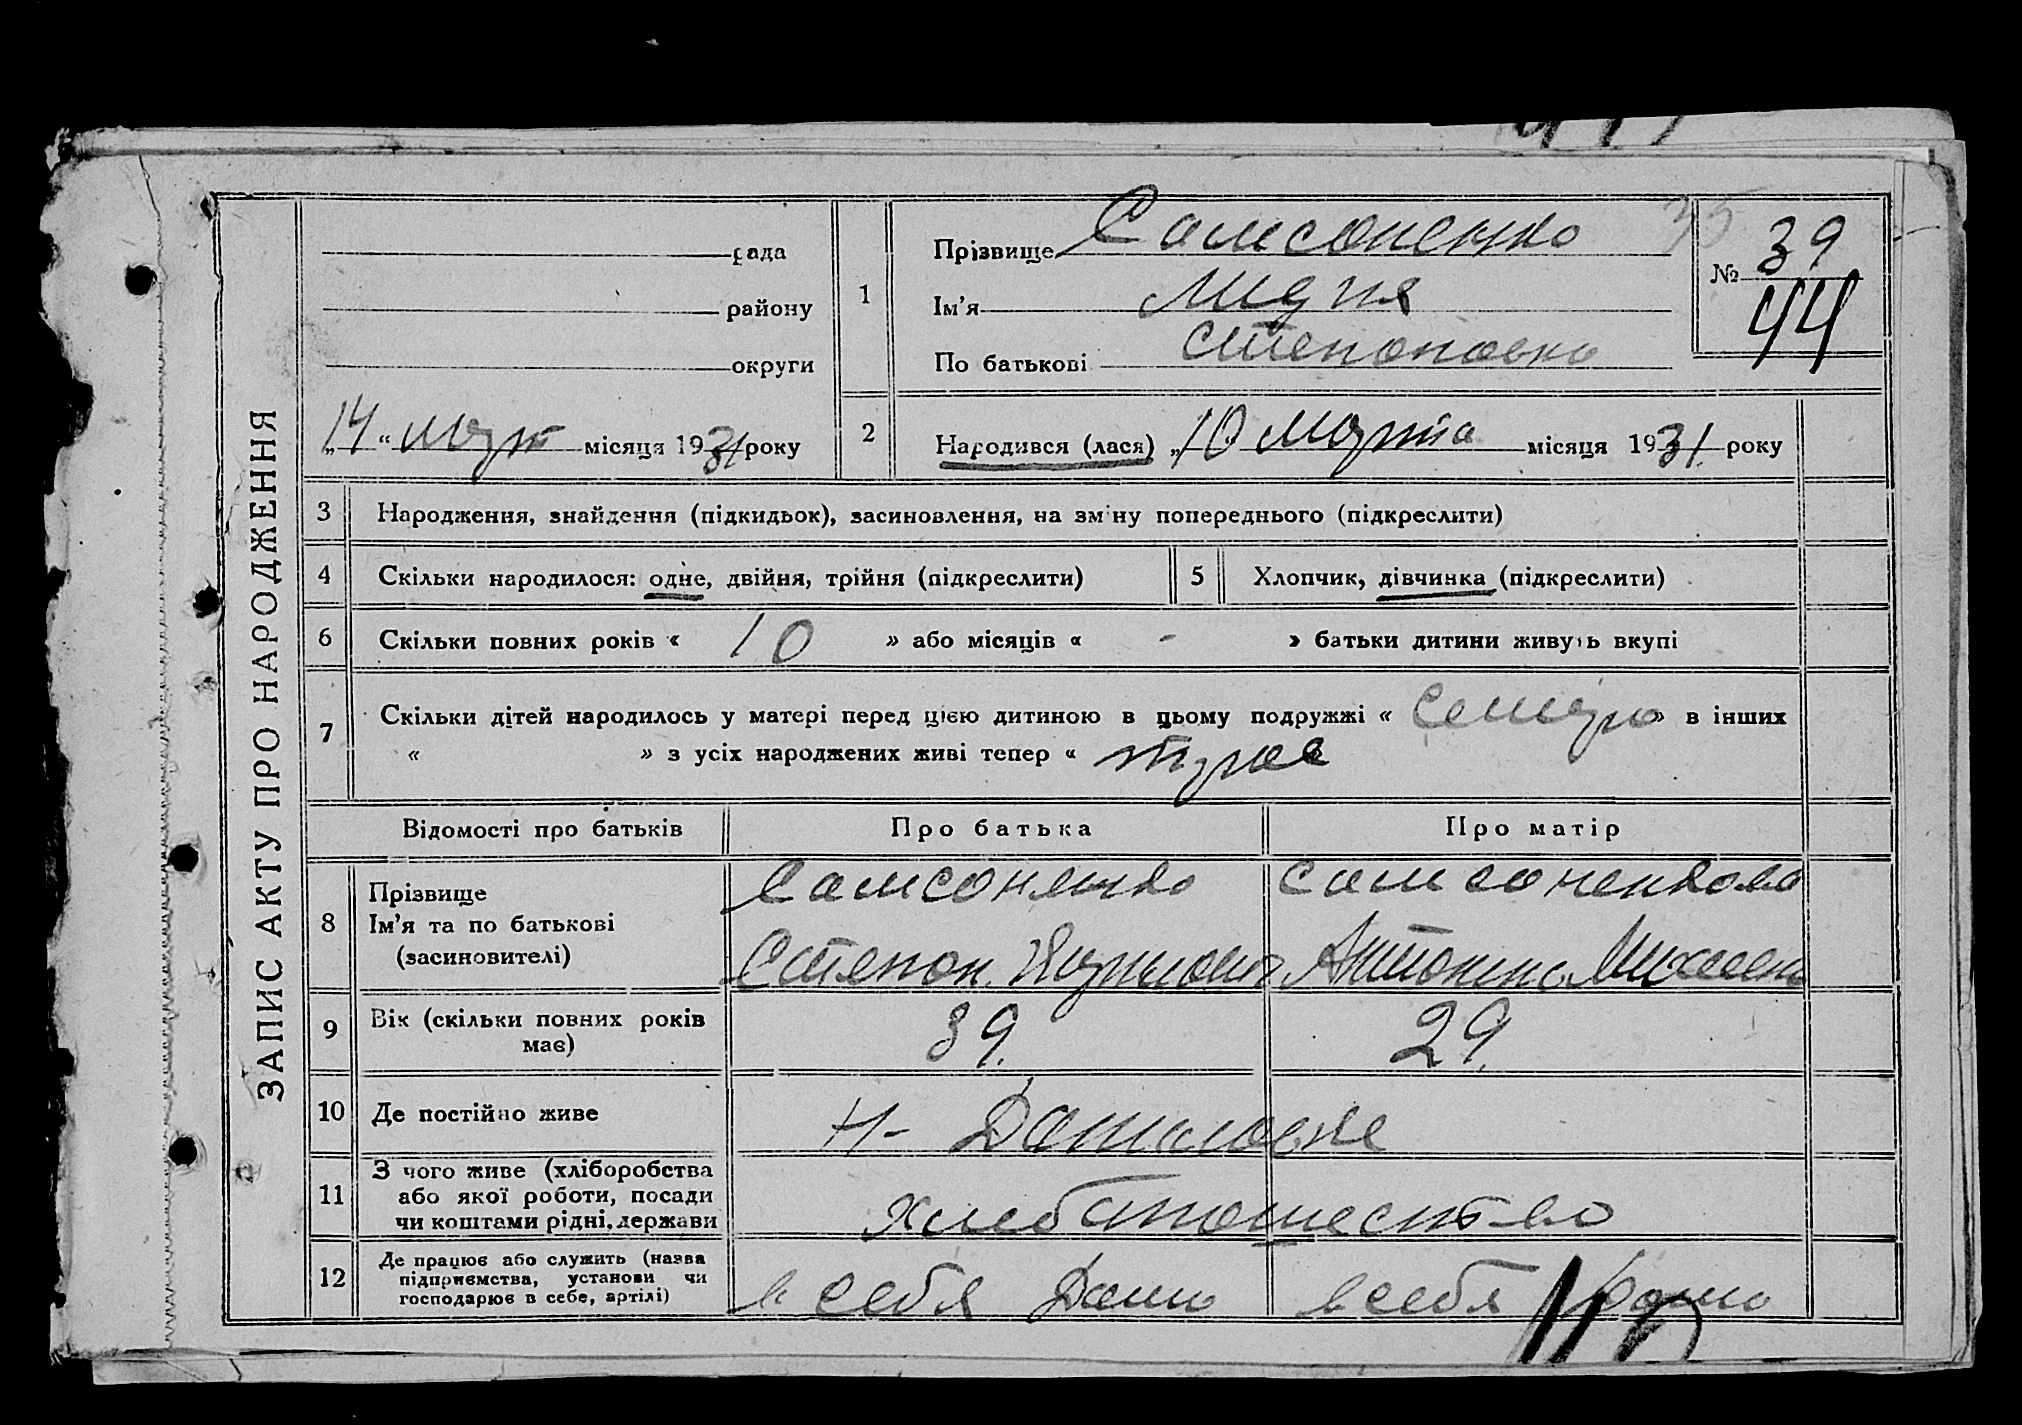 ЗАПИС АКТУ ПРО НАРОДЖЕННЯ
рада
району
округи
„14“ март місяця 1931 року
1
Прізвище Самсоненко
Ім’я Лидия
По батькові Степановна
№ 39
44
2
Народився (лася) „10 марта місяця 1931. року
3 Народження, знайдення (підкидьок), засиновлення, на зміну попереднього (підкреслити)
4 Скільки народилося: одне, двійня, трійня (підкреслити)
5 Хлопчик, дівчинка (підкреслити)
6 Скільки повних років « 10 » або місяців « - » батьки дитини живуть вкупі
7 Скільки дітей народилось у матері перед цією дитиною в цьому подружжі « » в інших
« » з усіх народжених живі тепер « трое
Відомості про батьків Про батька Про матір
8 Прізвище
Ім’я та по батькові
(засиновителі)
Самсоненко
Степан
Самсоненкова
Антонина
9 Вік (скільки повних років
має)
39. 29.
10 Де постійно живе
Н- Даниловке
11 З чого живе (хліборобства
або якої роботи, посади
чи коштами рідні, держави
хлебапашество
12 Де працює або служить (назва
підприємства, установи чи
господарює в себе, артілі)
в себя дома в себя дома